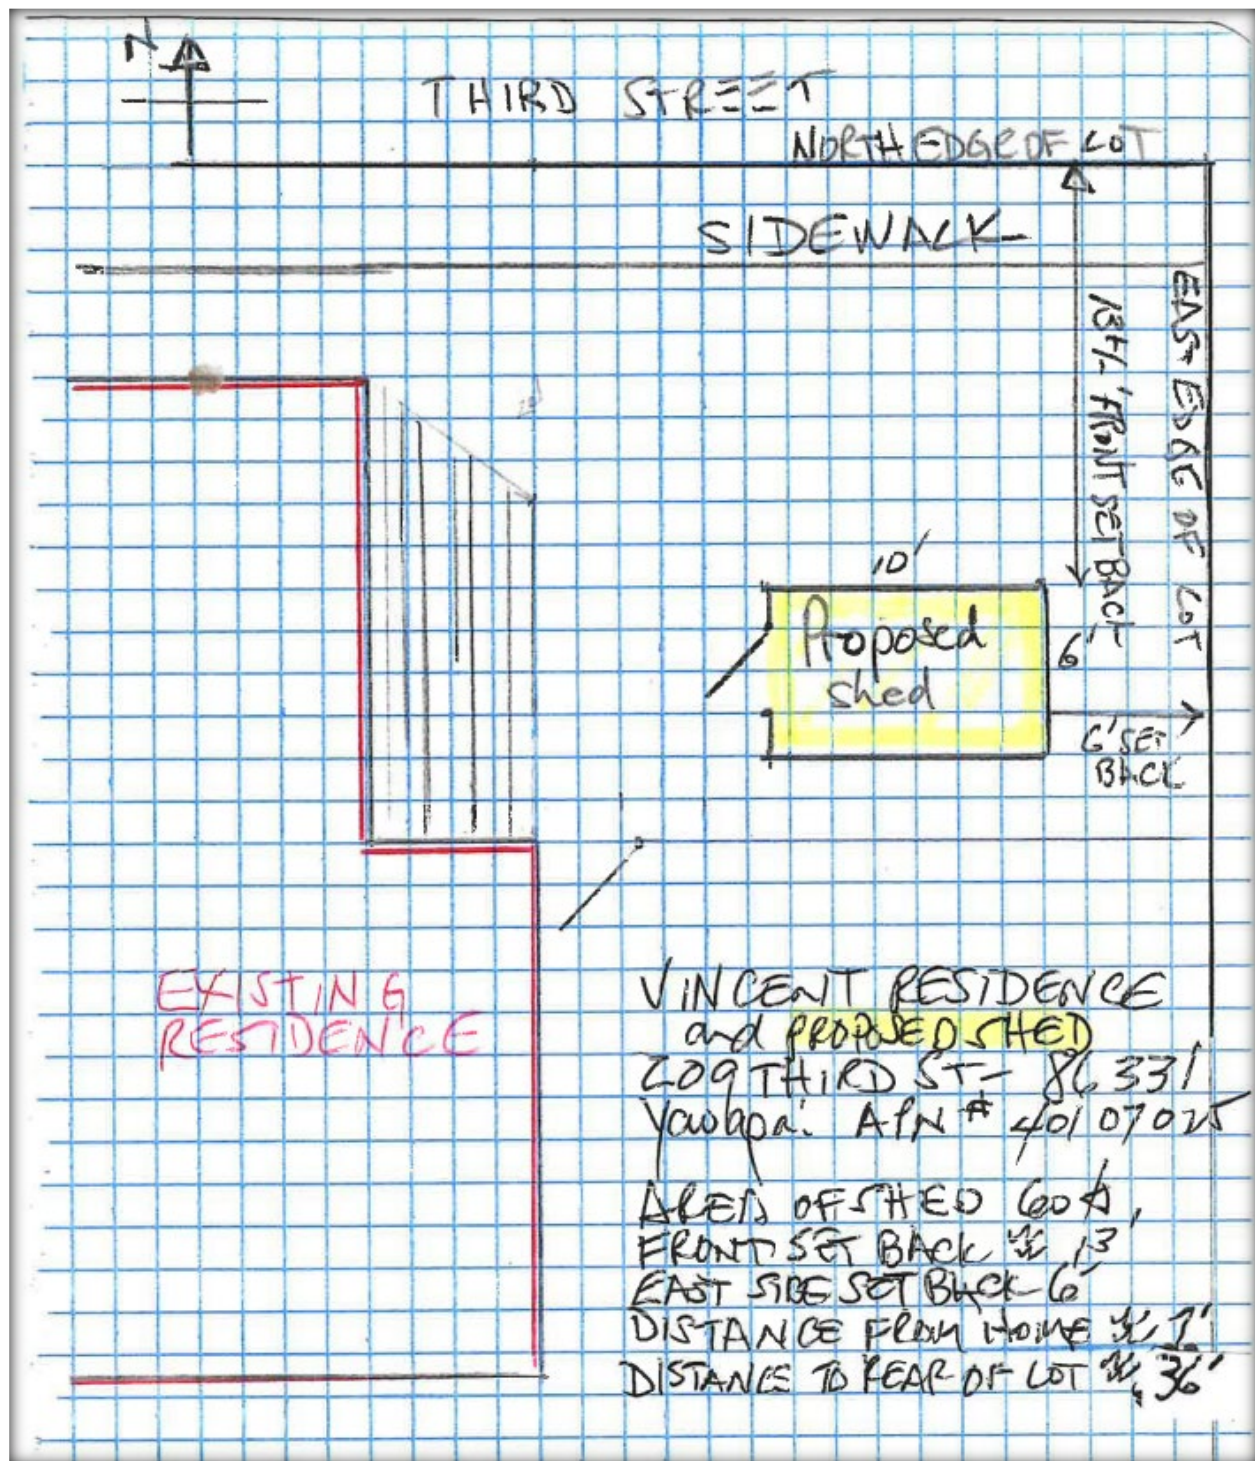 N
THIRD STREET
NORTH EDGE OF LOT
SIDEWALK
EAST EDGE OF LOT
13+/-' FRONT SET BACK
10'
Proposed
shed
6'
6' SET
BACK
EXISTING
RESIDENCE
VINCENT RESIDENCE
and PROPOSED SHED
209 THIRD ST- 86331
Yavapai APN # 40107025
AREA OF SHED 60
FRONT SET BACK 13'
EAST SIDE SET BACK 6'
DISTANCE FROM HOME 7'
DISTANCE TO REAR OF LOT 36'